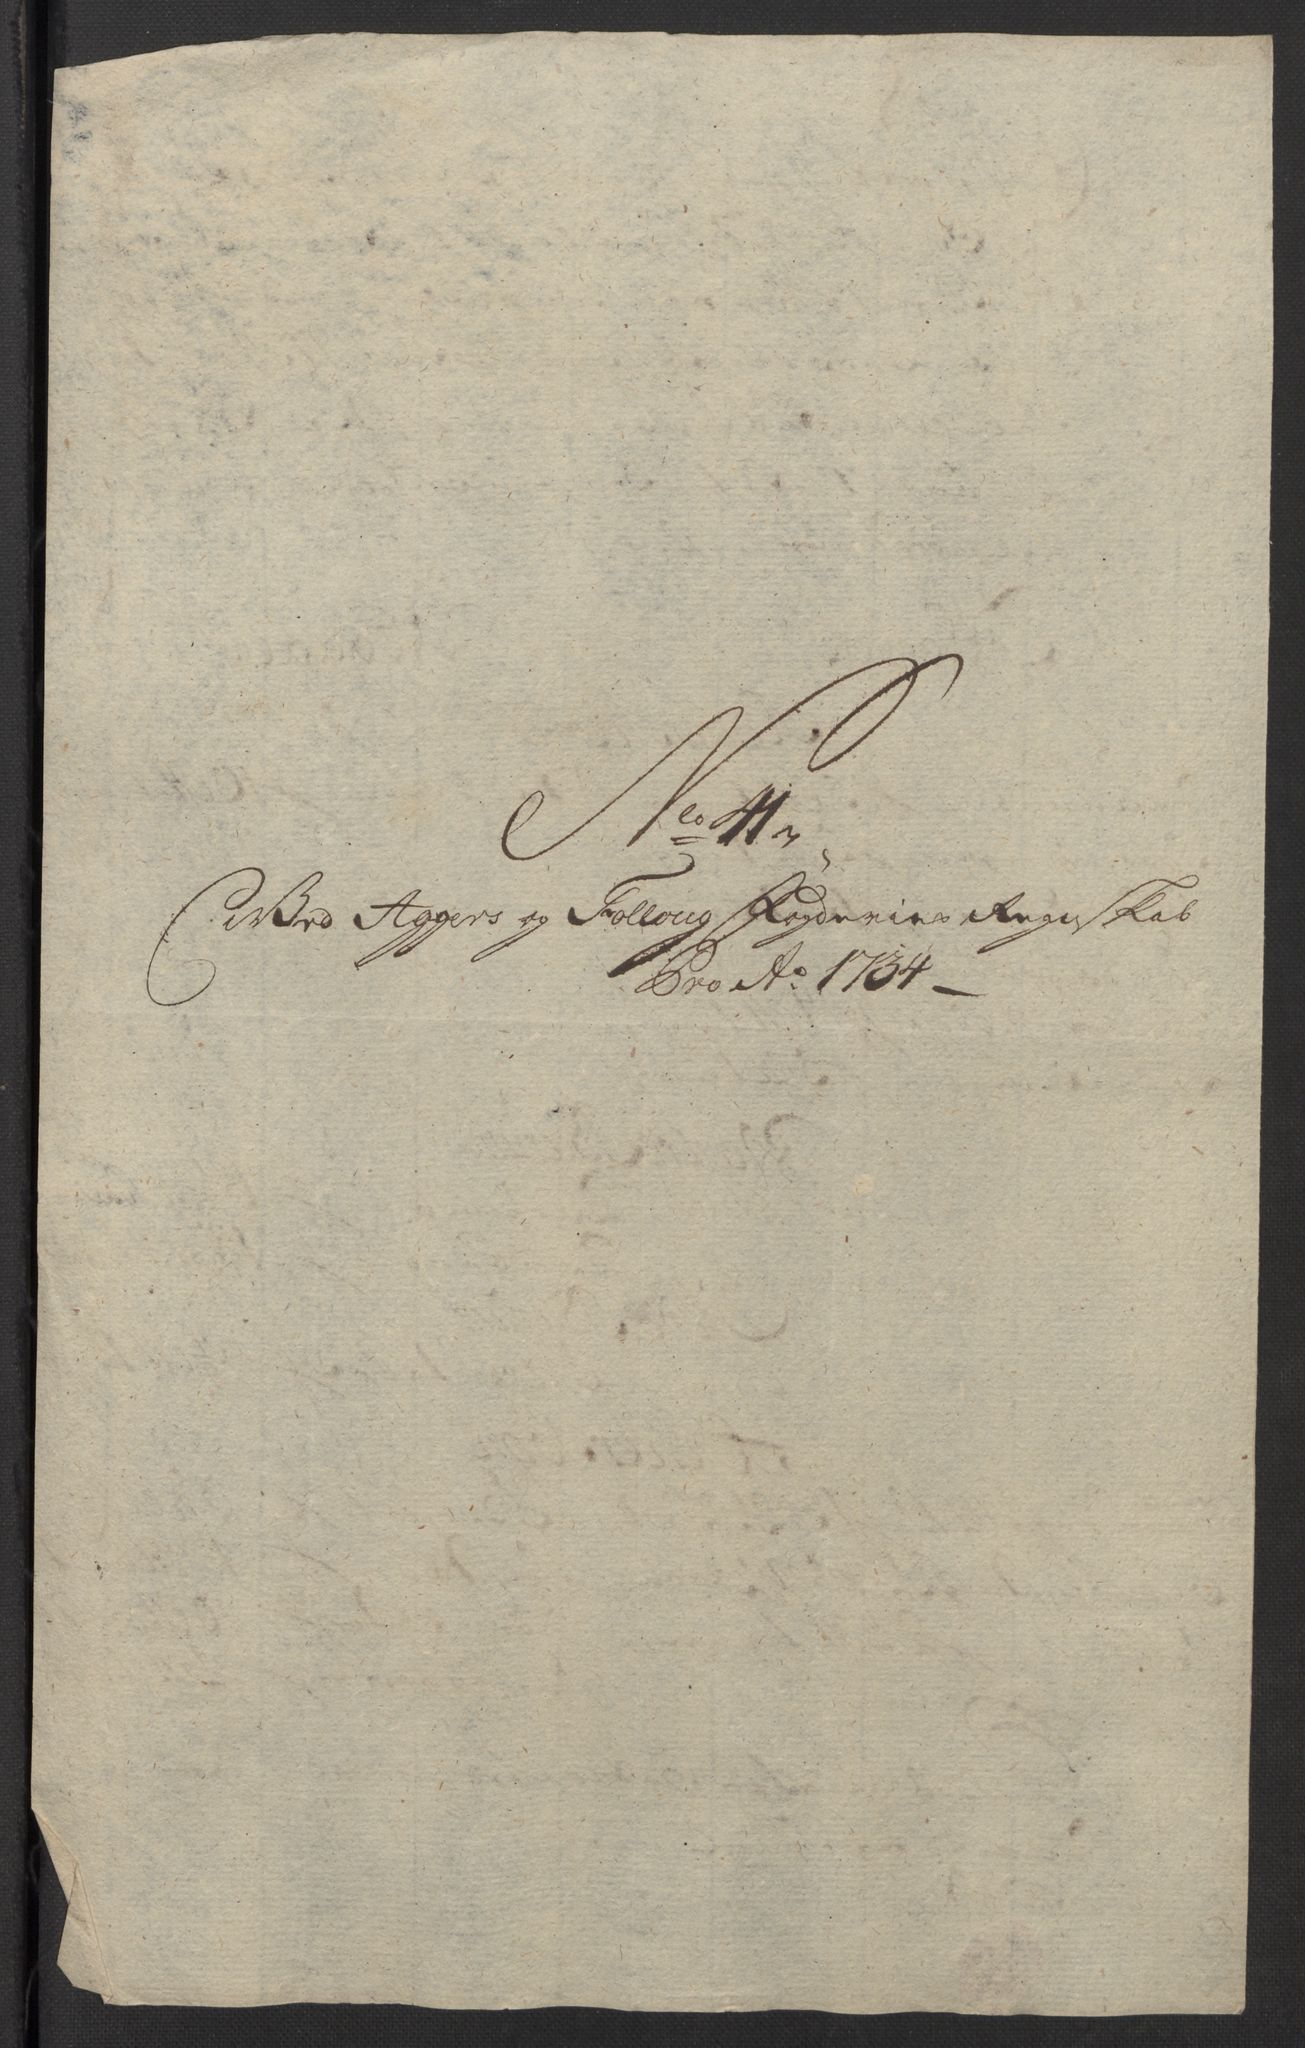 No 41
Ved Aggers og Folloug Fogderies Regnskab
Pro Ao 1734